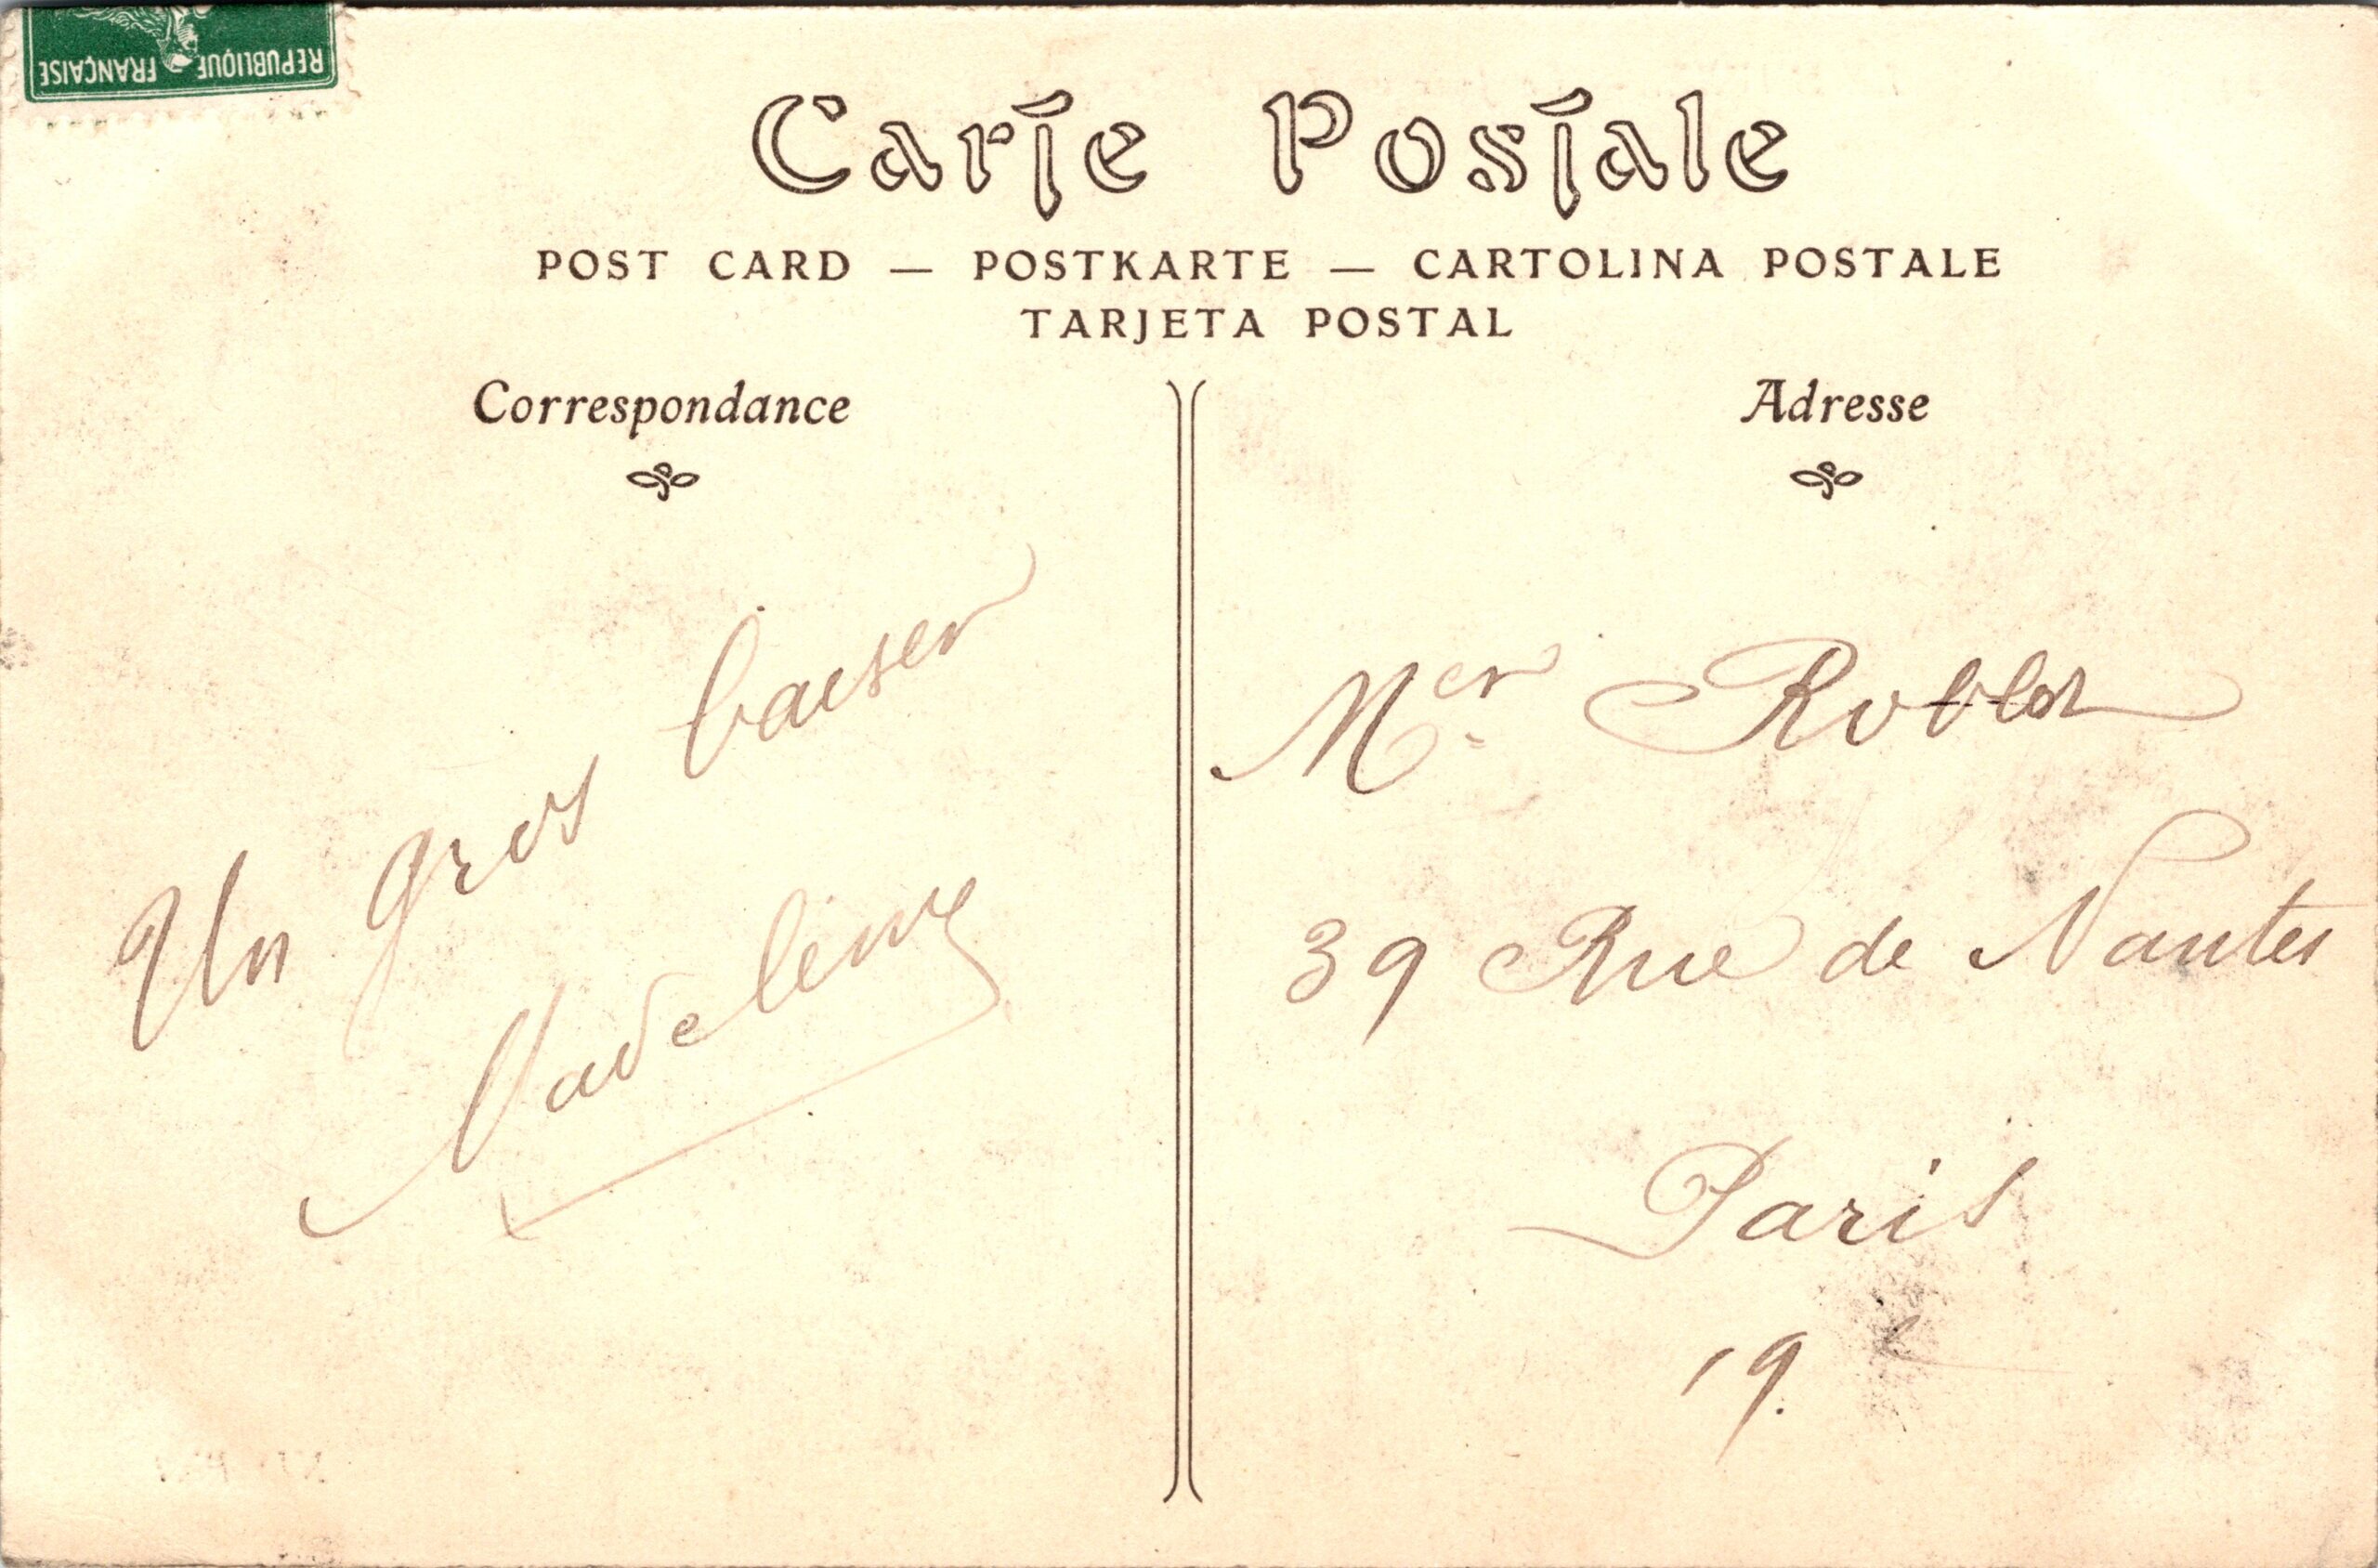 REPUBLIQUE FRANÇAISE
Carte Postale
POST CARD — POSTKARTE — CARTOLINA POSTALE
TARJETA POSTAL
Correspondance
Adresse
Un gros baiser
Madeleine
Mer Roblot
39 Rue de Nantes
Paris
19e